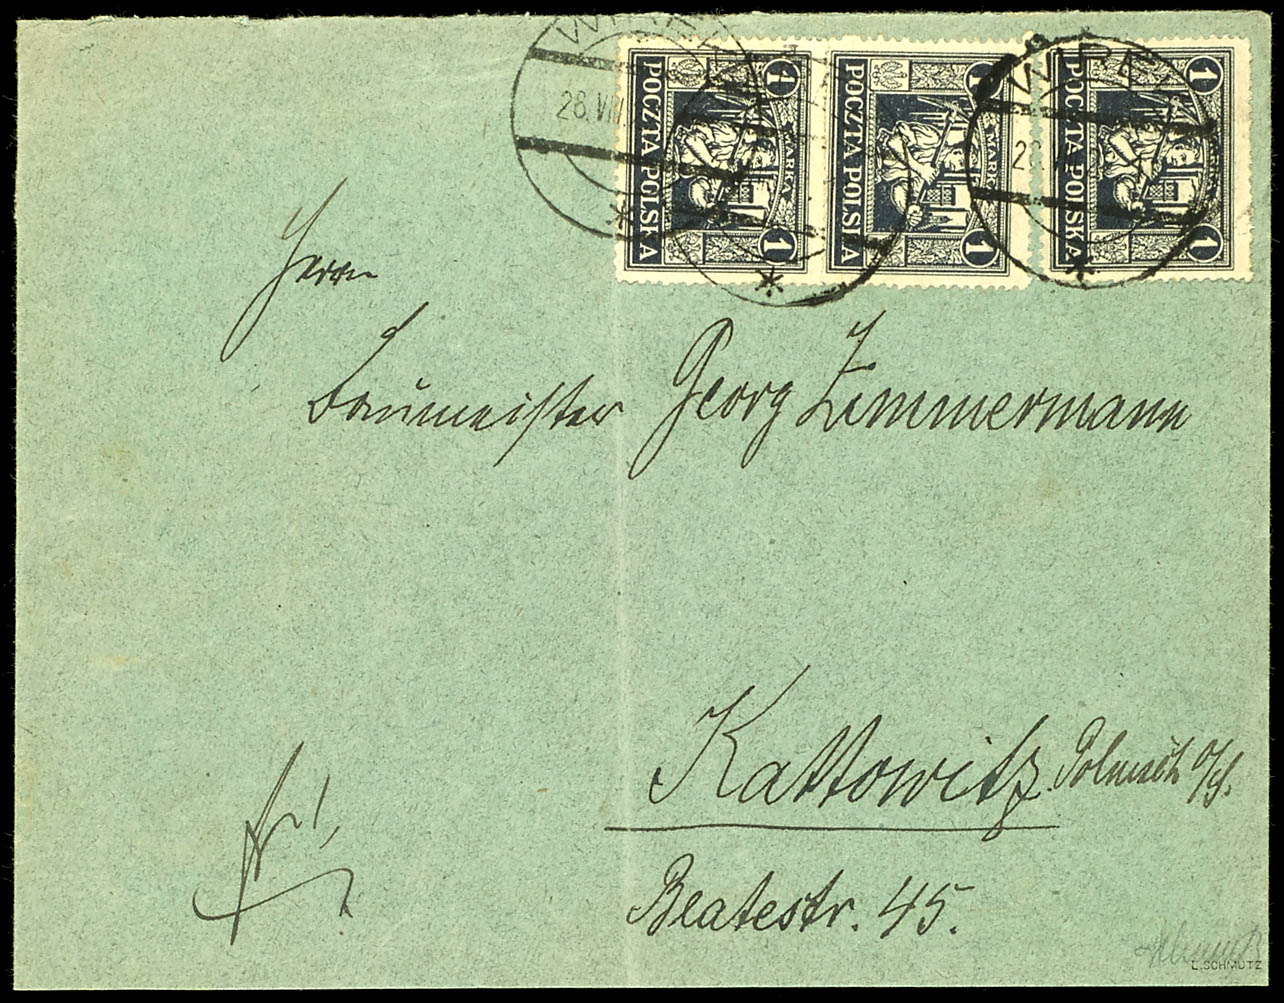 WIREK
28.VIII
1 MARKA 1
POCZTA POLSKA
1 MARKA 1
POCZTA POLSKA
1 MARKA 1
POCZTA POLSKA
WIREK
Herrn
Baumeister Georg Zimmermann
Kattowitz Polnisch O/S.
Beatestr. 45.
L. SCHMUTZ